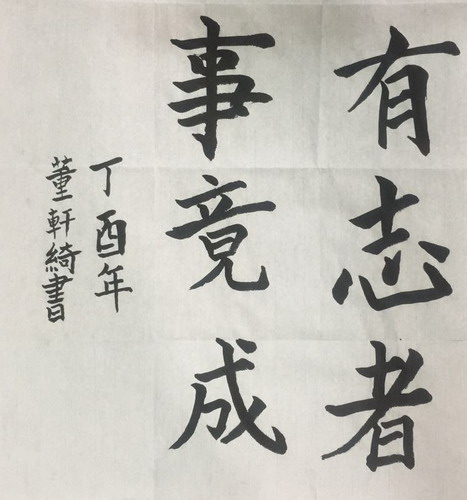 有志者
事竟成
丁酉年
董軒綺書